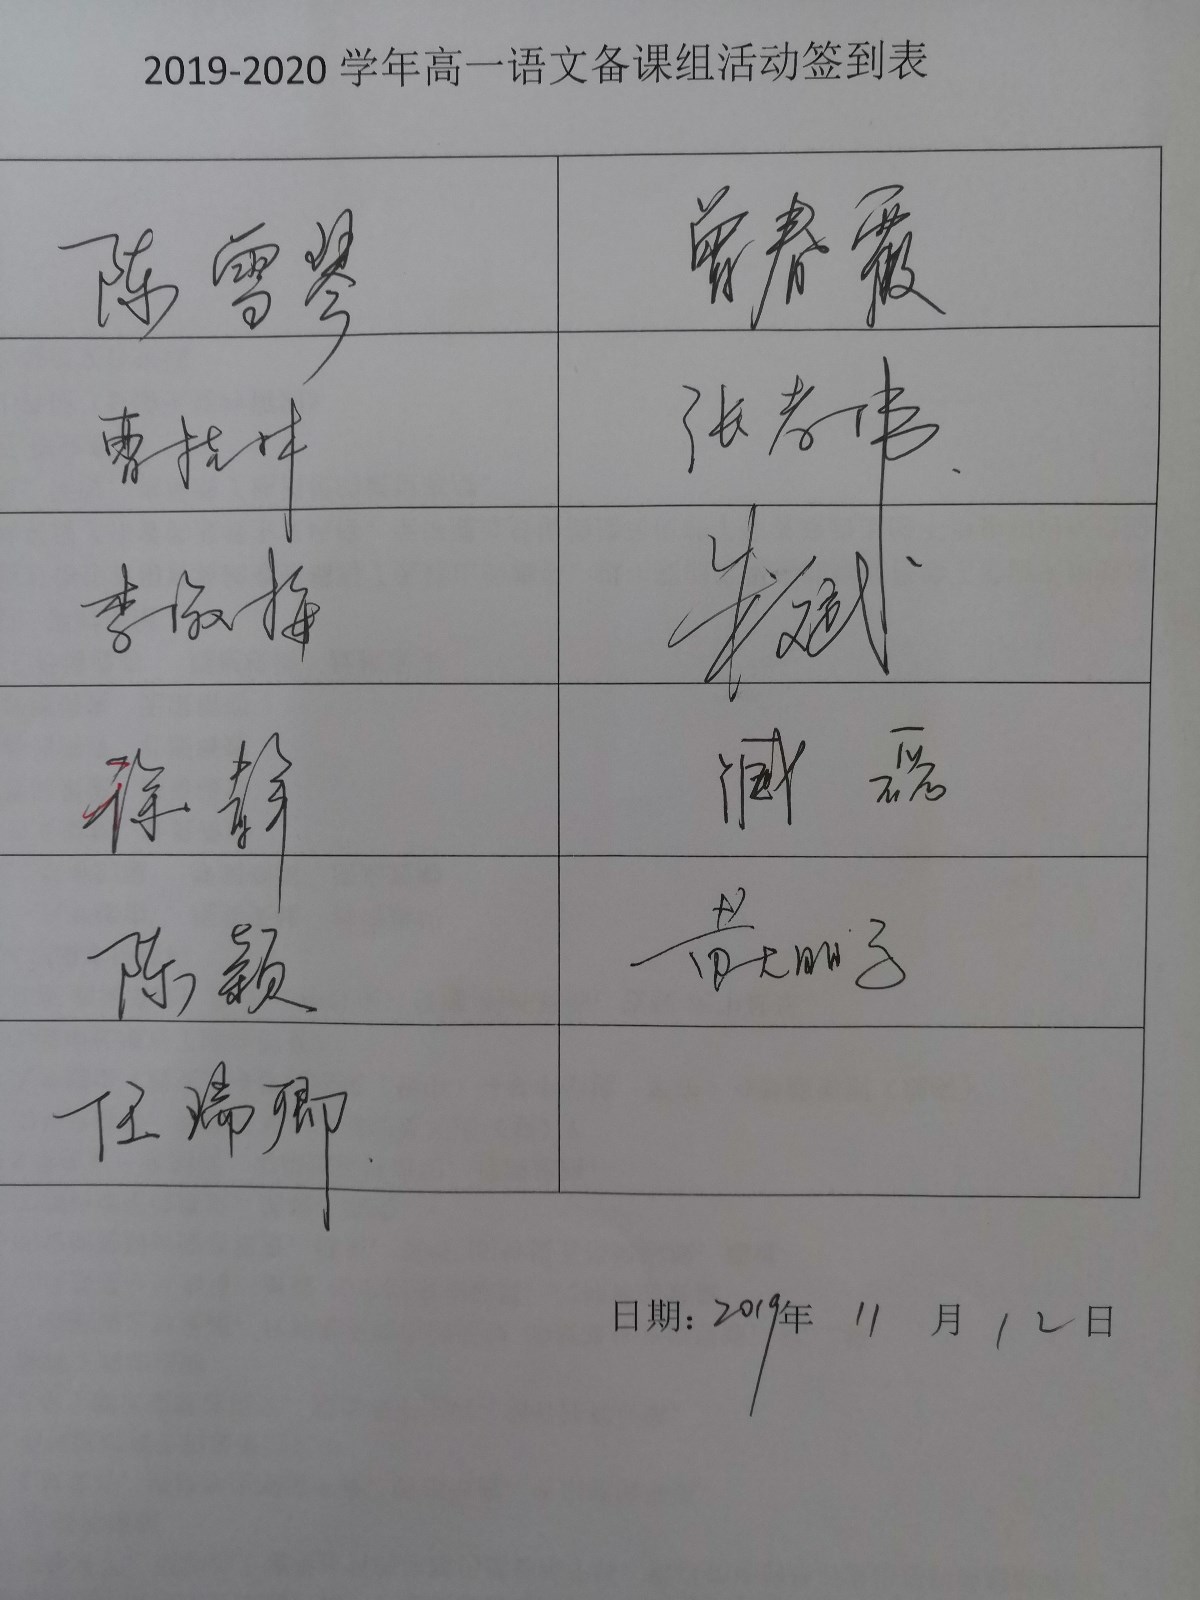 2019-2020 学年高一语文备课组活动签到表
陈雪琴 曾春霞
曹晓坤 张孝伟
李敏梅 朱斌
徐静 臧磊
陈颖
任瑞卿
日期: 2019年 11 月 12 日